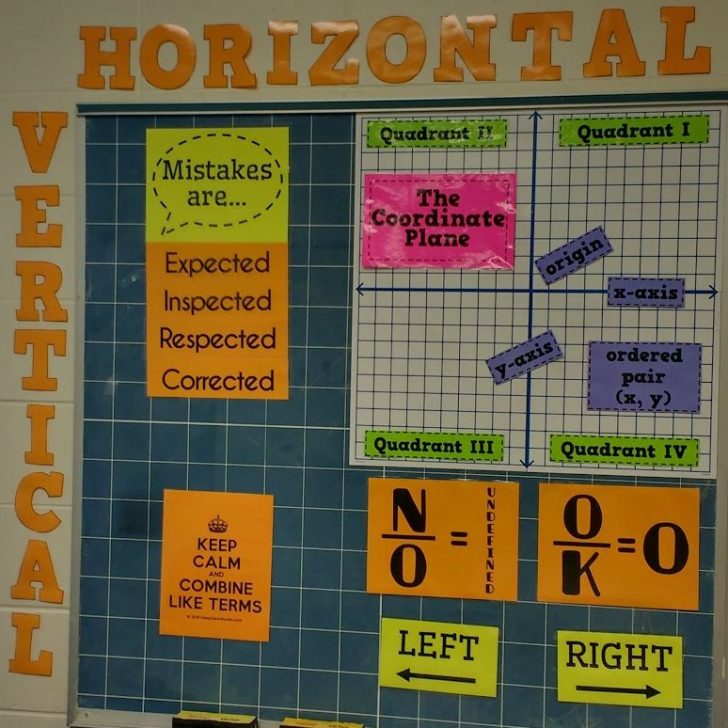 HORIZONTAL
VERTICAL
Mistakes
are...
Expected
Inspected
Respected
Corrected
Quadrant II
Quadrant I
The
Coordinate
Plane
origin
x-axis
y-axis
ordered
pair
(x, y)
Quadrant III
Quadrant IV
KEEP
CALM
AND
COMBINE
LIKE TERMS
N
O
=
UNDEFINED
O
K
=O
LEFT
RIGHT